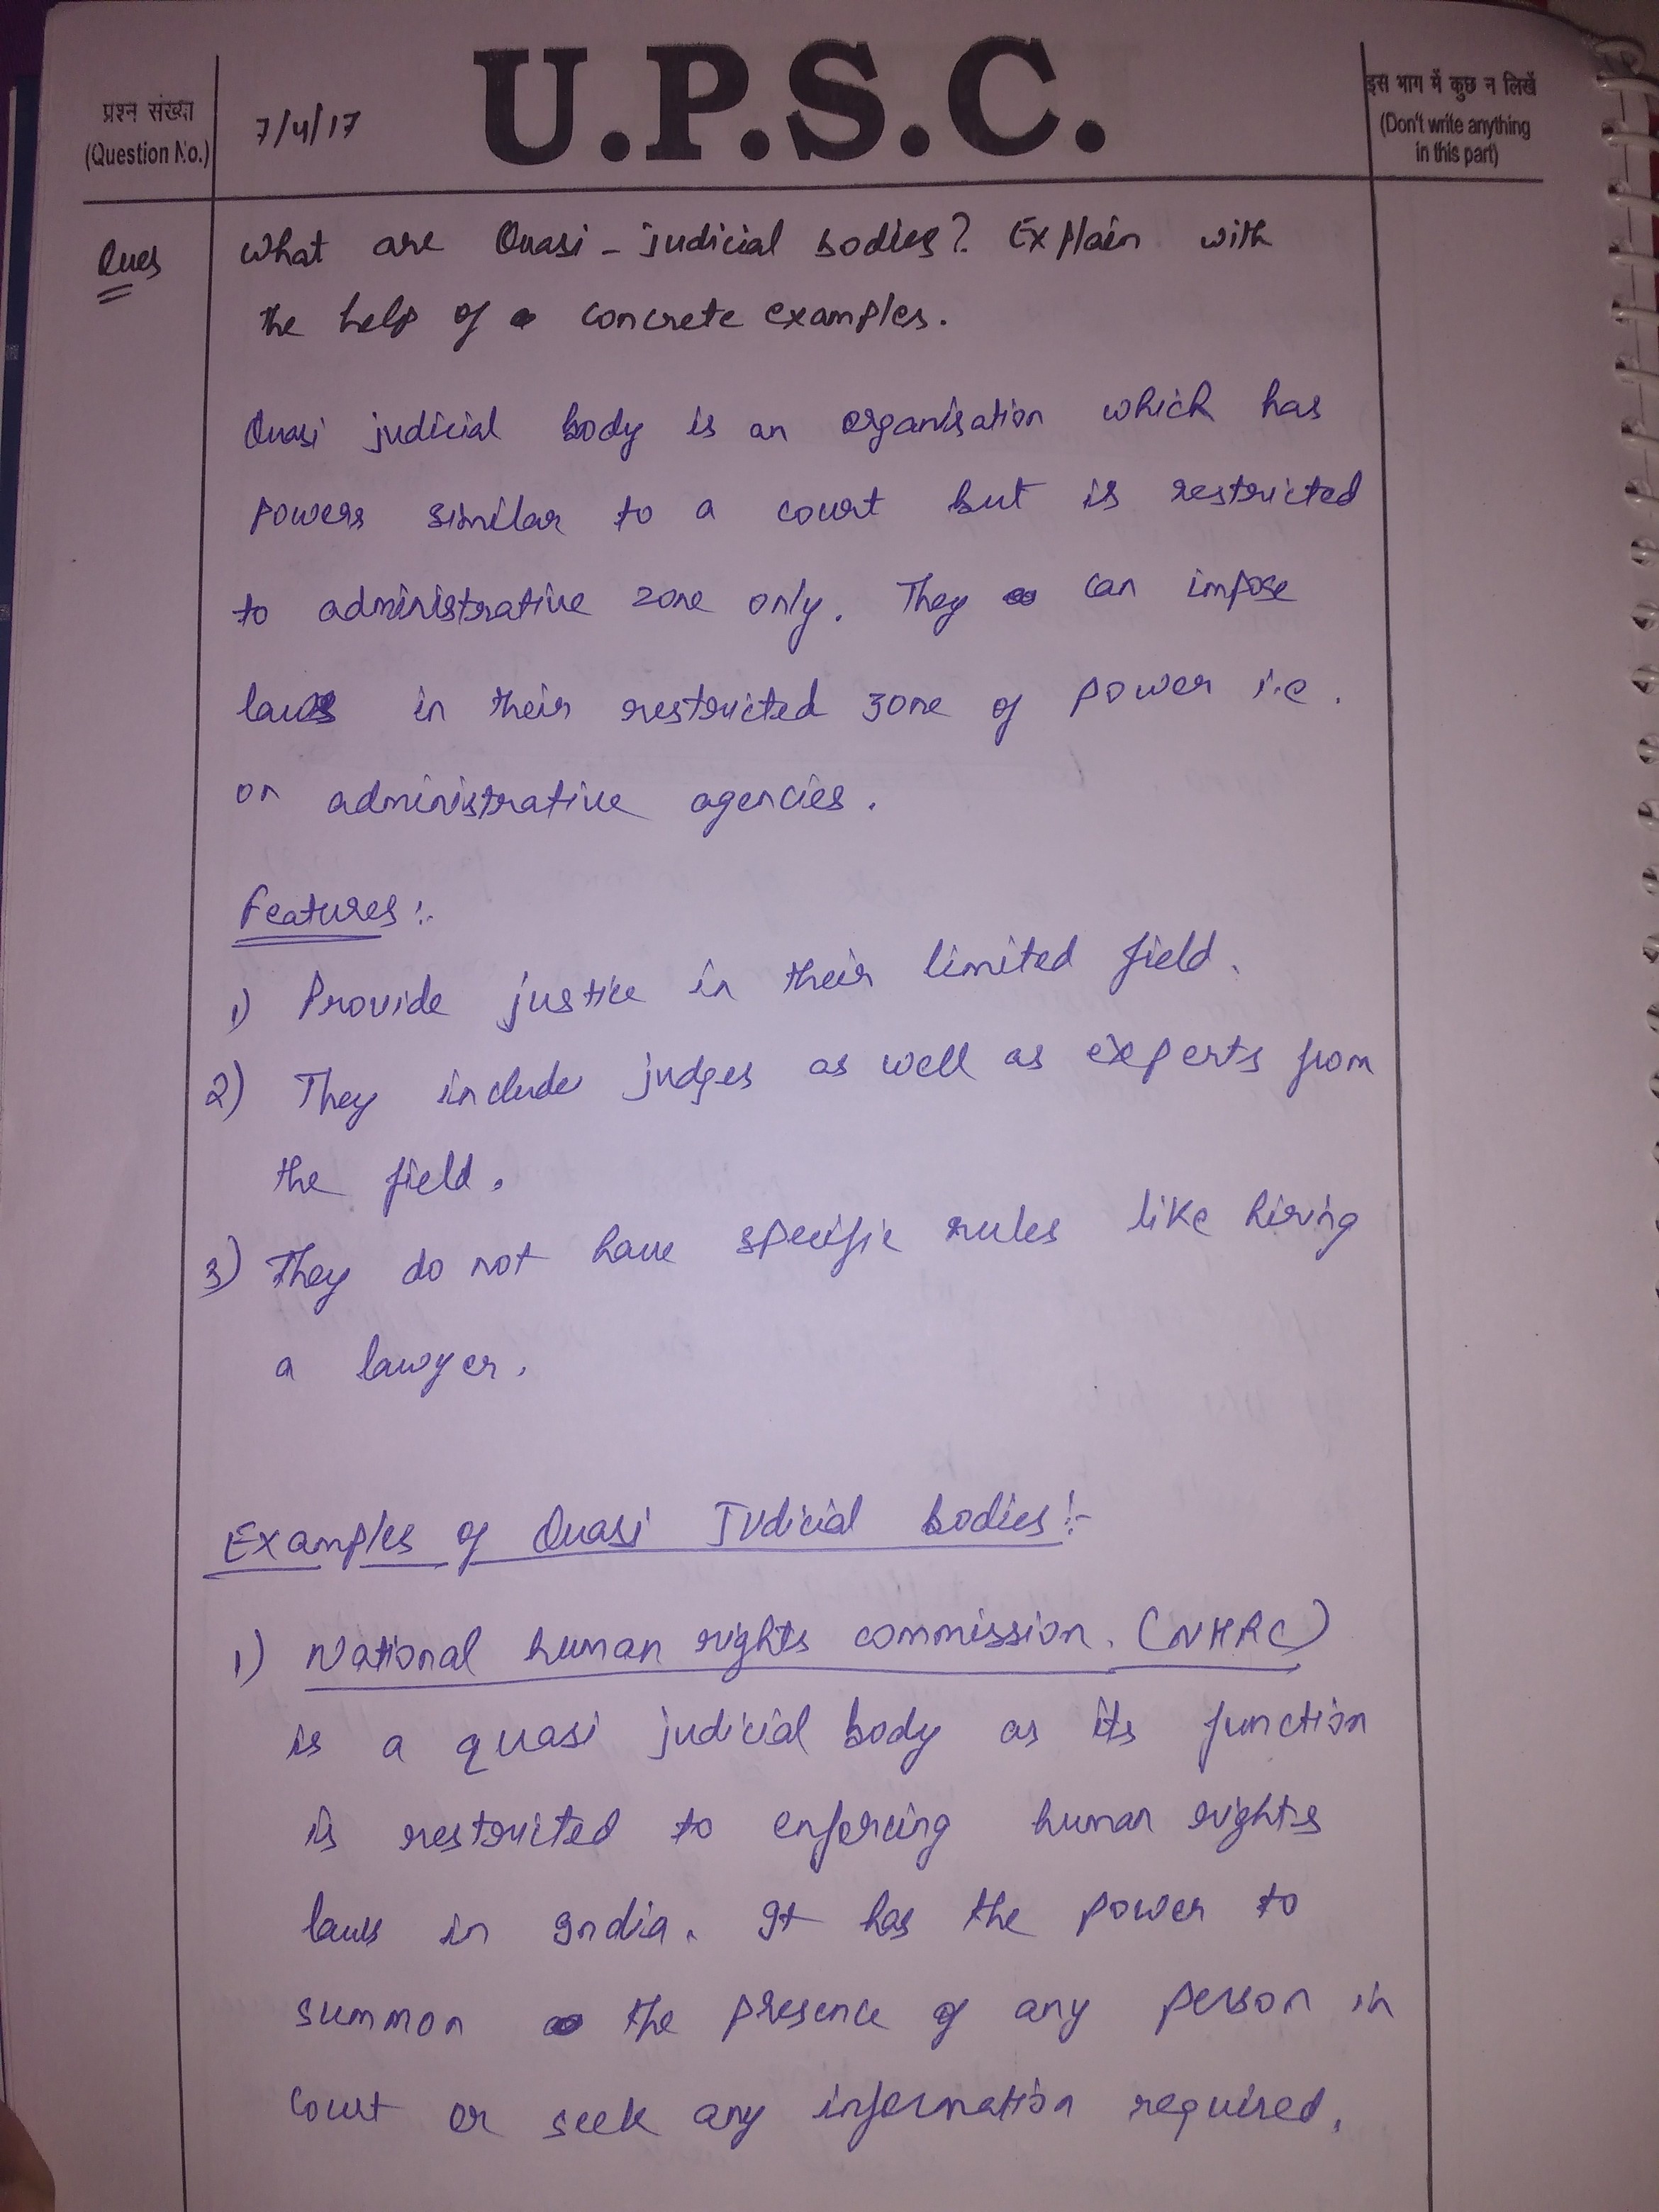 U.P.S.C.
प्रश्न संख्या
(Question No.)
7/4/17
इस भाग में कुछ न लिखें
(Don't write anything
in this part)
Ques
What are Quasi-judicial bodies? Explain with
the help of concrete examples.
Quasi judicial body is an organisation which has
powers similar to a court but is restricted
to administrative zone only. They can impose
laws in their restricted zone of power i.e.
on administrative agencies.
Features:-
1) Provide justice in their limited field.
2) They include judges as well as experts from
the field.
3) They do not have specific rules like hiring
a lawyer.
Examples of Quasi Judicial bodies:-
1) National human rights commission. (NHRC)
is a quasi judicial body as its function
is restricted to enforcing human rights
laws in India. It has the power to
summon the presence of any person in
court or seek any information required.